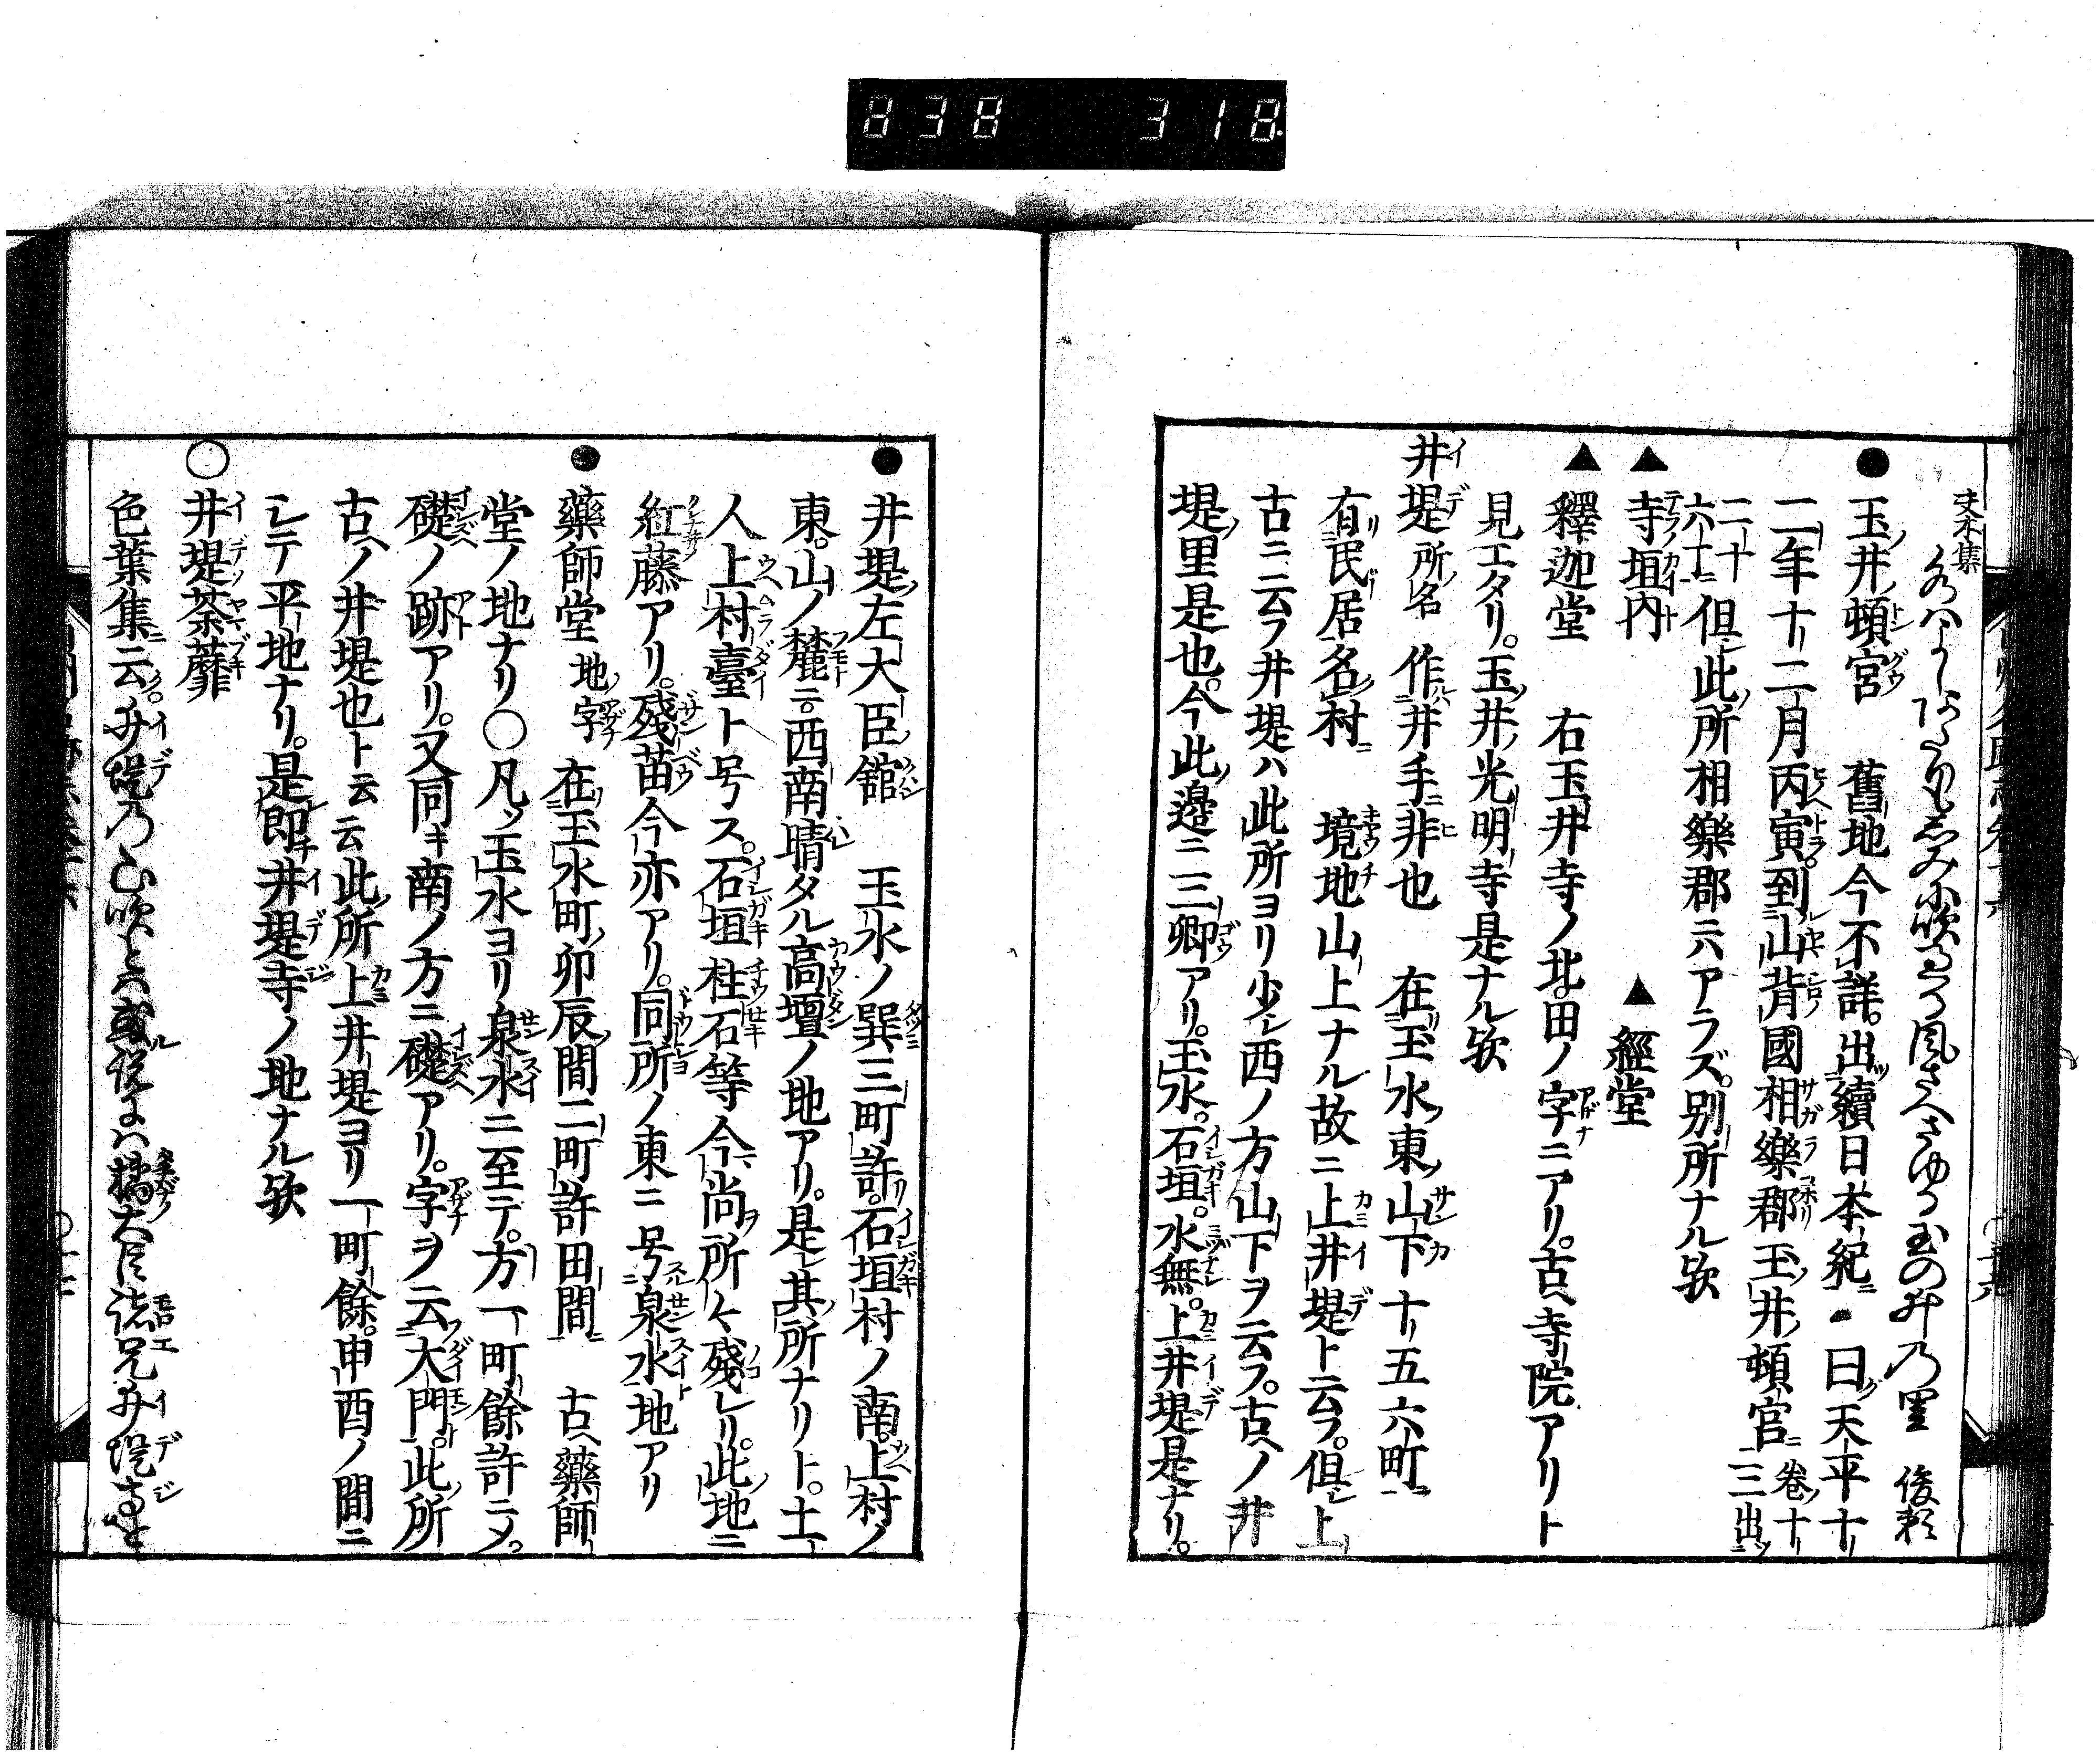 838 318
夫木集
風さへさゆる玉の井乃里 俊頼
●玉ノ井頓宮 舊地今不詳。出續日本紀ニ曰ク天平十
二年十二月丙寅。到山背國相樂郡玉ノ井頓宮ニ 卷ノ十三出ツ
二十六丁ニ 但シ此ノ所相樂郡ニハアラズ。別所ナル欤
▲寺垣内 ▲經堂
▲釋迦堂 右玉井寺ノ北。田ノ字ニアリ。古ヘ寺院アリト
見エタリ。玉ノ井ノ光明寺是ナル欤
井堤 所ノ名 作ルハ井手ニ非也 在玉水ノ東ノ山下十五六町ニ
有リ民居名ノ村ニ 境地山上ナル故ニ上井堤ト云フ。但シ上
古ニ云フ井堤ハ此所ヨリ少シ西ノ方山下ヲ云フ。古ヘノ井
堤ノ里是也。今此ノ邊ニ三卿アリ。玉水。石垣。水無。上井堤是ナリ。
●井堤ノ左大臣ノ舘 玉水ノ巽三町許リ。石垣村ノ南。上村ノ
東。山ノ麓ニ。西南晴タル高壇ノ地アリ。是レ其ノ所ナリト。土
人上村臺ト号ス。石垣柱石等今ニ尚ヲ所々殘レリ。此ノ地ニ
紅藤アリ。殘苗今亦アリ。同所ノ東ニ号スル泉水ト地アリ
●藥師堂 地ノ字 在玉水町ノ卯辰ノ間二町許田間ニ 古ヘ藥師
堂ノ地ナリ○凡ソ玉水ヨリ泉水ニ至テ。方一町餘許ニメ。
礎ノ跡アリ。又同キ南ノ方ニ礎アリ。字ヲ云大門ト。此ノ所
古ヘノ井堤也ト云云此ノ所上井堤ヨリ一町餘。申酉ノ間ニ
シテ平地ナリ。是レ即チ井堤寺ノ地ナル欤
○井堤ノ荼蘼
色葉集ニ云ク。井堤乃山吹とハ或ル説にハ橘大臣諸兄井堤寺を